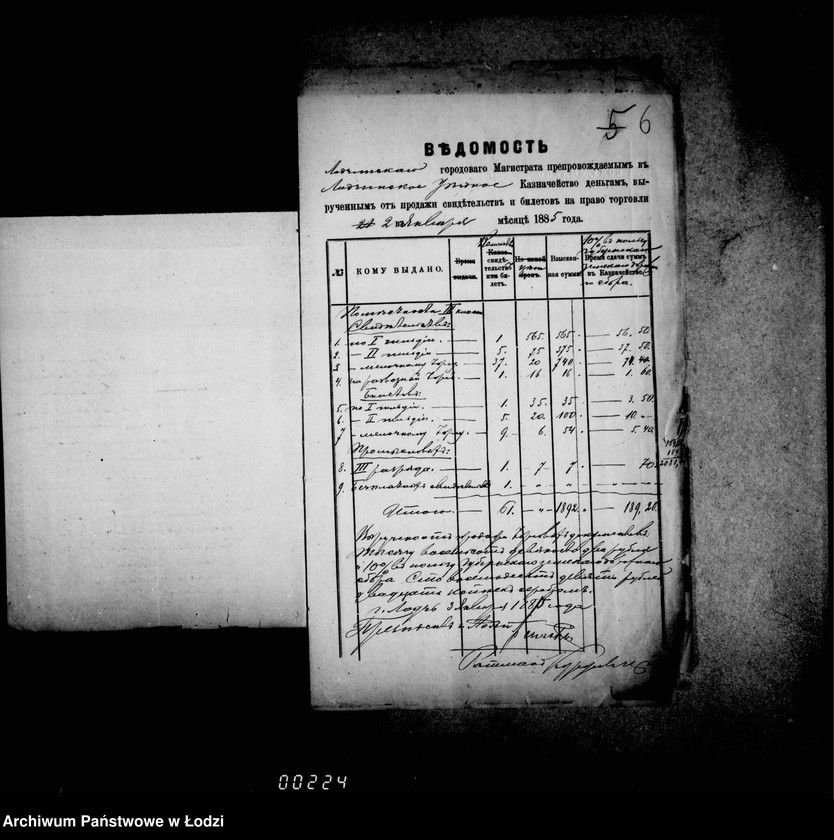 5 6
ВѢДОМОСТЬ
городоваго Магистрата препровождаемымъ въ
Лодзинское Уѣздное Казначейство деньгамъ, вы-
рученнымъ отъ продажи свидѣтельствъ и билетовъ на право торговли
2 Января мѣсяцѣ 1885 года.
№ КОМУ ВЫДАНО. Время выдачи. свидѣ-тельствъ или би-летъ. На какой Взыскан-ная сумма Время сдачи суммъ въ Казначейство
10% въ пользу
сбора.
III класса
Свидѣтельства:
1. по I гильдіи 1 565. 565. 56. 50
2. – II гильдіи 5. 75 375 37. 50.
3 – мелочному торгу 37. 20 740 74.
4. на развозный торгъ 1. 16 16 1. 60
Билеты:
5. по I гильдіи. 1. 35. 35 3. 50.
6. – II гильдіи. 5. 20. 100 10. –
7 – мелочному торгу. 9. 6. 54 5. 40
Промысловыя:
8. III разряда. 1. 7 7 70.
9. Безплатныя свидѣтельства 1. " " " "
Итого. 61. – " – 1892. 189. 20.
тысячу восемьсотъ девяносто два рубля
и 10% въ пользу Губернскаго земскаго
сбора Сто восемьдесятъ девять рублей
двадцать копѣекъ серебромъ.
г. Лодзь 3 Января 1885 года
Президентъ
Ратманъ
00224
Archiwum Państwowe w Łodzi